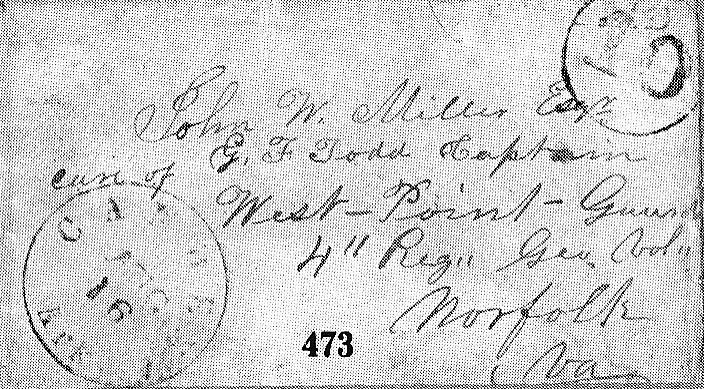 John W. Miller Esqr
care of G. F. Todd Captain
West-Point-Guard
4" Reg" Geo. Vol"
Norfolk
Va
10
473